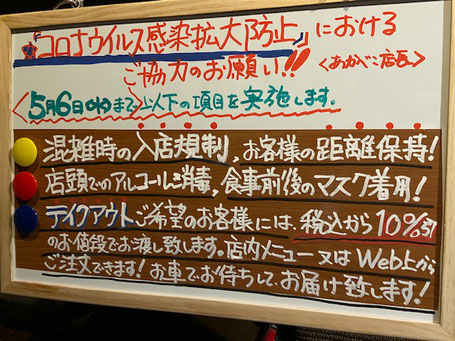 ☆『コロナウイルス感染拡大防止』における
ご協力のお願い!!
<あかべこ店長>
5月6日(水)まで以下の項目を実施します。
混雑時の入店規制,お客様の距離保持!
店頭でのアルコール消毒,食事前後のマスク着用!
テイクアウトご希望のお客様には,税込から10%引
のお値段でお渡し致します。店内メニュー又はWeb上から
ご注文できます!お車でお待ちして,お届け致します!